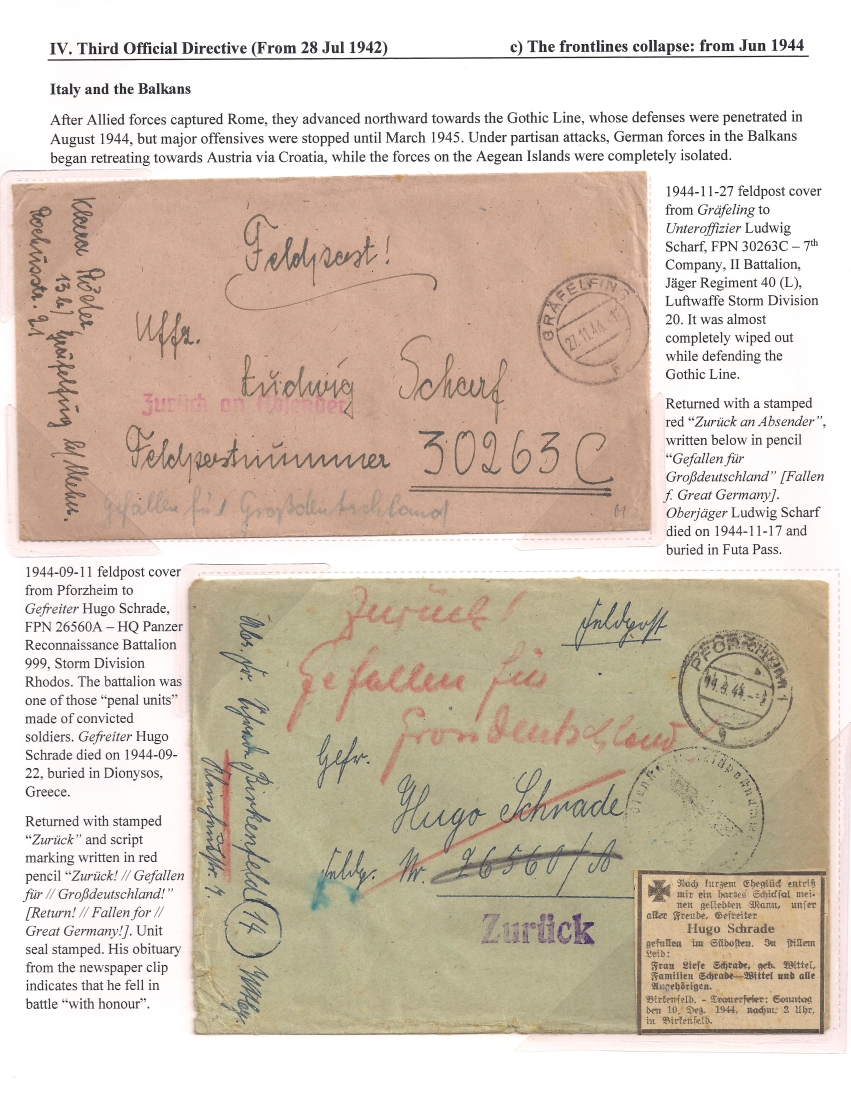 IV. Third Official Directive (From 28 Jul 1942)
c) The frontlines collapse: from Jun 1944
Italy and the Balkans
After Allied forces captured Rome, they advanced northward towards the Gothic Line, whose defenses were penetrated in
August 1944, but major offensives were stopped until March 1945. Under partisan attacks, German forces in the Balkans
began retreating towards Austria via Croatia, while the forces on the Aegean Islands were completely isolated.
Klara
13b) Gräfelfing b/
Rochusstr. 21
Feldpost!
GRÄFELFING
27.11.44.
Uffz.
Ludwig Scharf
Zurück an Absender
Feldpostnummer 30263 C
Gefallen für Großdeutschland
1944-11-27 feldpost cover
from Gräfeling to
Unteroffizier Ludwig
Scharf, FPN 30263C – 7th
Company, II Battalion,
Jäger Regiment 40 (L),
Luftwaffe Storm Division
20. It was almost
completely wiped out
while defending the
Gothic Line.
Returned with a stamped
red “Zurück an Absender”,
written below in pencil
“Gefallen für
Großdeutschland” [Fallen
f. Great Germany].
Oberjäger Ludwig Scharf
died on 1944-11-17 and
buried in Futa Pass.
1944-09-11 feldpost cover
from Pforzheim to
Gefreiter Hugo Schrade,
FPN 26560A – HQ Panzer
Reconnaissance Battalion
999, Storm Division
Rhodos. The battalion was
one of those “penal units”
made of convicted
soldiers. Gefreiter Hugo
Schrade died on 1944-09-
22, buried in Dionysos,
Greece.
Returned with stamped
“Zurück” and script
marking written in red
pencil “Zurück! // Gefallen
für // Großdeutschland!”
[Return! // Fallen for //
Great Germany!]. Unit
seal stamped. His obituary
from the newspaper clip
indicates that he fell in
battle “with honour”.
Zurück!
Gefallen für
Feldpost
PFORZHEIM 1
Gefr.
Hugo Schrade
Nr. 26560/A
Birkenfeld (14)
Zurück
Nach kurzem Eheglück entriß
mir ein hartes Schicksal mei-
nen geliebten Mann, unser
aller Freude, Gefreiter
Hugo Schrade
gefallen im Südosten. In stillem
Leid:
Frau Liese Schrade, geb. Wittel,
Familien Schrade—Wittel und alle
Angehörigen.
Birkenfeld. - Trauerfeier: Sonntag
den 10. Dez. 1944, nachm. 2 Uhr,
in Birkenfeld.